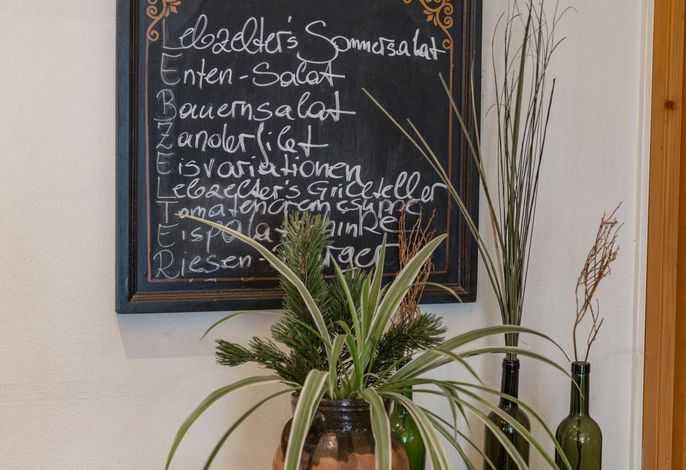 Lebzelter's Sommersalat
Enten-Salat
Bauernsalat
Zanderfilet
Eisvariationen
Lebzelter's Grillteller
Tomatencremesuppe
Eispalatschinke
Riesen-Burger